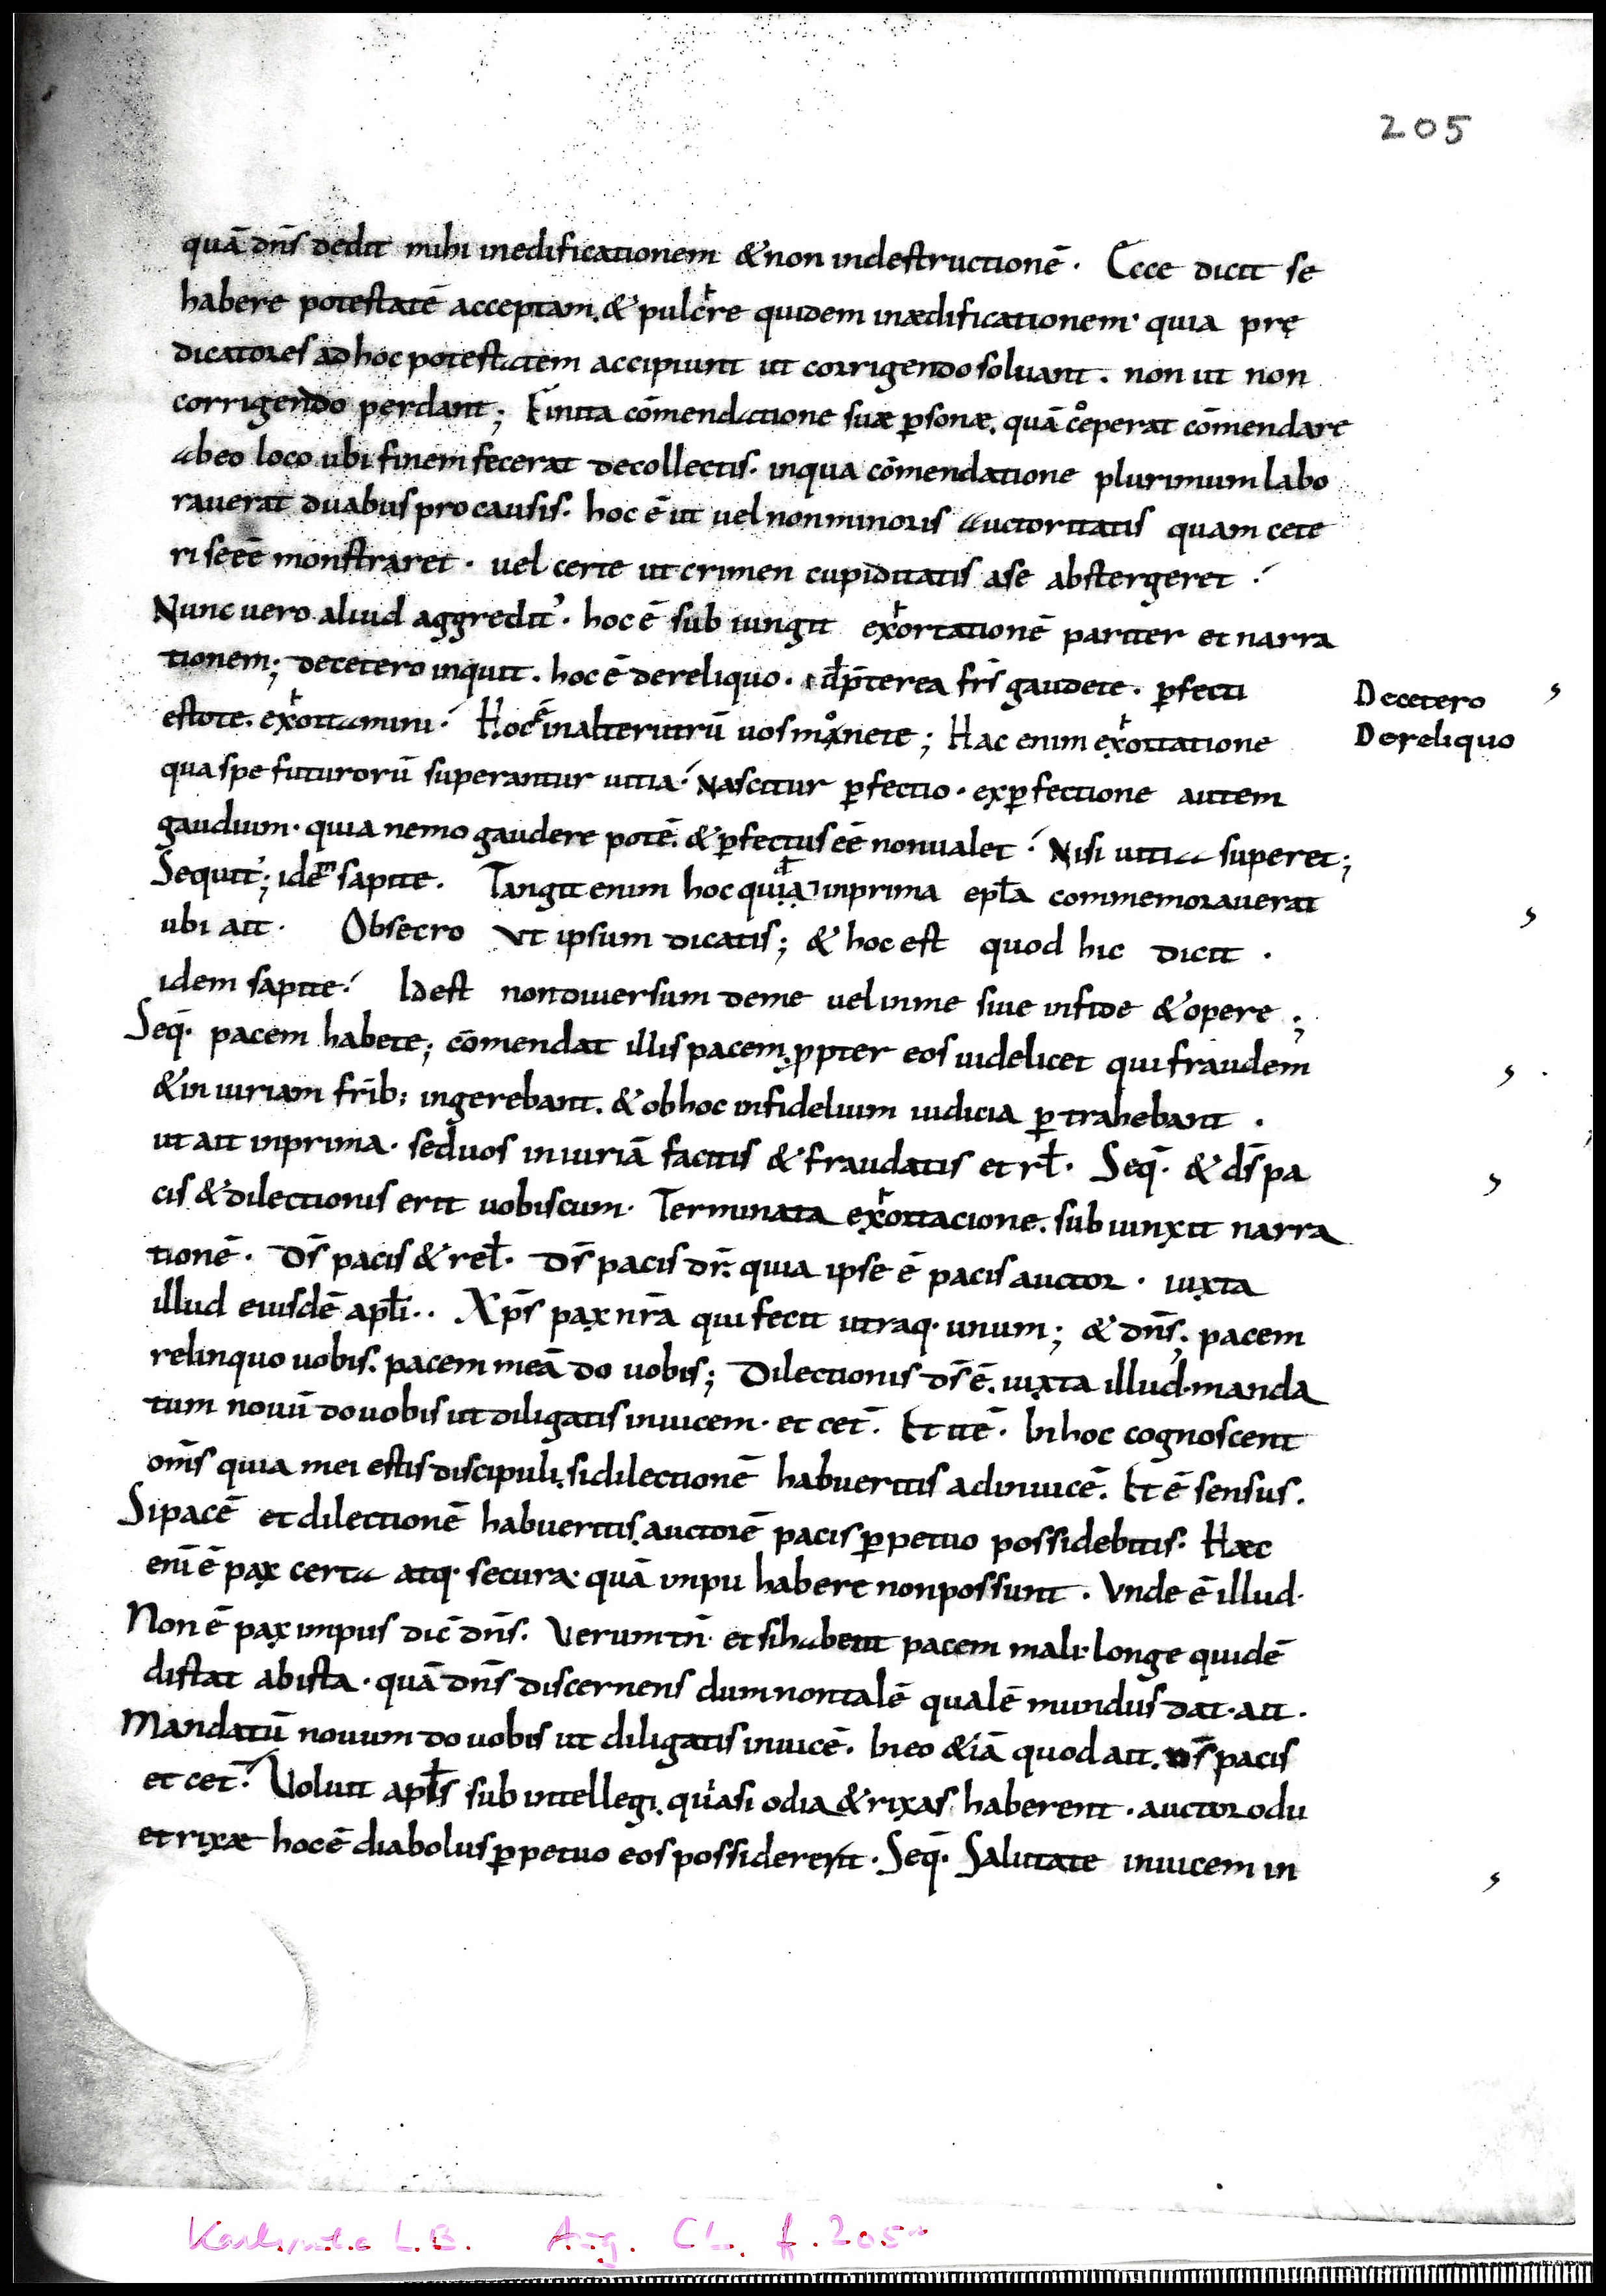 205
quā dn̄s dedit mihi inedificationem & non indestructionē . Ecce dicit se
habere potestatē acceptam . & pulcre quidem inædificationem · quia prę
dicatores ad hoc potestatem accipiunt ut corrigendo soluant . non ut non
corrigendo perdant ; Finita cōmendatione suæ ꝑsonæ . quā coeperat cōmendare
ab eo loco ubi finem fecerat decollectis · inqua cōmendatione plurimum labo
rauerat duabus pro causis · hoc ē ut uel non minoris auctoritatis quam cete
ri se eē monstraret . uel certe ut crimen cupiditatis ase abstergeret .
Nunc uero aliud aggredit᾿ · hoc ē sub iungit exortationē pariter et narra
tionem ; decetero inquit . hoc ē dereliquo . fr̄s gaudete . ꝑfecti
Decetero
estote . exortamini . Hoc inalterutrū uos monete ; Hac enim exortatione
Dereliquo
qua spe futurorū superantur uitia . Nascitur ꝑfectio . exꝑfectione autem
gaudium · quia nemo gaudere potē . & ꝑfectus eē non ualet . Nisi uitia superet ;
Sequit᾿ ; idem sapite . Tangit enim hoc inprima epl̄a commemorauerat
ubi ait . Obsecro Vt ipsum dicatis ; & hoc est quod hic dicit .
idem sapite . Id est non diuersum deme uel inme siue infide & opere ;
Seq̄ . pacem habete ; cōmendat illis pacem . ꝓpter eos uidelicet qui fraudem
& in iuriam fr̄ib; ingerebant . & ob hoc infidelium iudicia ꝑ trahebant .
ut ait inprima . sed uos in iuriā facitis & fraudatis et rł . Seq̄ . & ds̄ pa
cis & dilectionis erit uobiscum . Terminata exortacione . sub iunxit narra
tionē . Ds̄ pacis & reł . Ds̄ pacis dr̄ . quia ipse ē pacis auctor . iuxta
illud eiusdē apłi . . Xp̄s pax nr̄a qui fecit utraq· unum ; & dn̄s ; pacem
relinquo uobis . pacem meā do uobis ; Dilectionis ds̄ ē . iuxta illud · manda
tum nouū do uobis ut diligatis inuicem . et cet̄ . Et itē . In hoc cognoscent
om̄s quia mei estis discipuli . si dilectionē habueritis adinuicē . Et ē sensus .
Si pacē et dilectionē habueritis . auctorē pacis ꝑpetuo possidebitis . Haec
eni̅ ē pax certa atq· secura . quā impii habere non possunt . Vnde ē illud .
Non ē pax impiis dic̄ dn̄s . Verum tn̄ . et si habent pacem mali . longe quidē
distat ab ista . quā dn̄s discernens dum non talē qualē mundus dat . ait .
Mandatū nouum do uobis ut diligatis inuicē . In eo & iā quod ait . ds̄ pacis
et cet̄ . Voluit apłs sub intellegi . quasi odia & rixas haberent . auctor odii
et rixæ hoc ē diabolus ꝑpetuo eos possiderent . Seq̄ . Salutate inuicem in
Karlsruhe L.B. Aug. CL. f. 205r